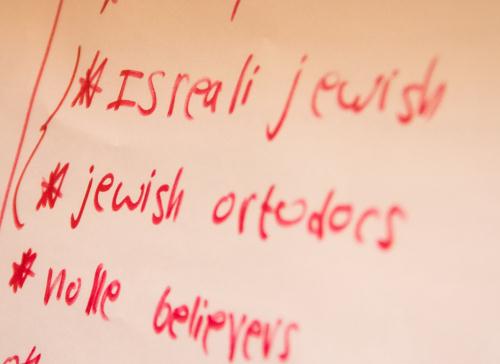 * Isreali jewish
* jewish ortodocs
* nolle believers